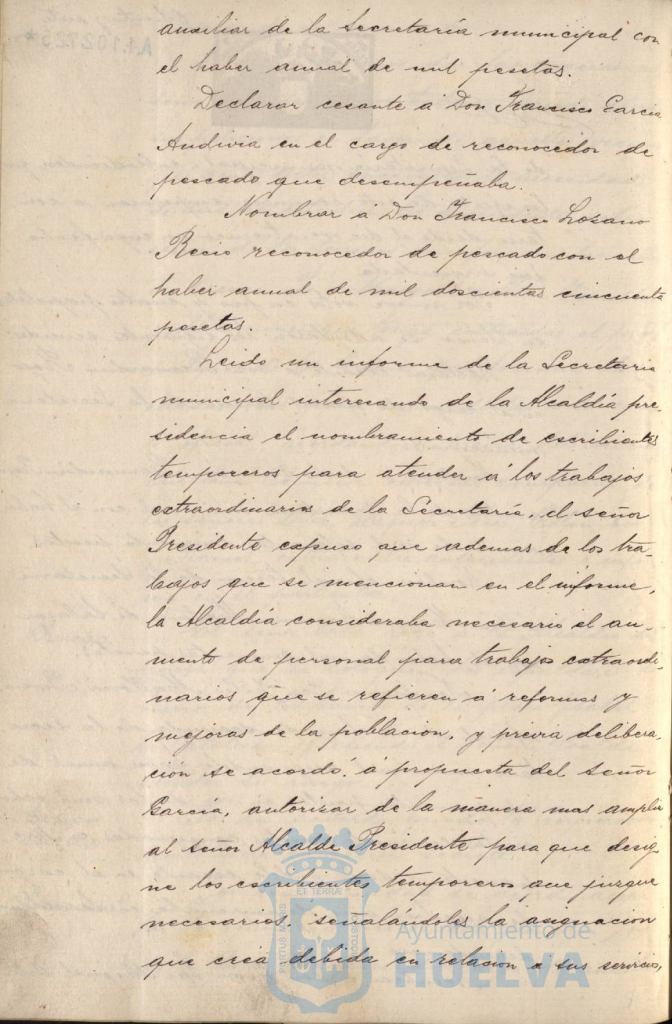 auxiliar de la Secretaría municipal con
el haber anual de mil pesetas.
Declarar cesante á Don Francisco Garcia
Andivia en el cargo de reconocedor de
pescado que desempeñaba.
Nombrar á Don Francisco Lozano
Recio reconocedor de pescado con el
haber anual de mil doscientas cincuenta
pesetas.
Leido un informe de la Secretaria
municipal interesando de la Alcaldía pre-
sidencia el nombramiento de escribientes
temporeros para atender á los trabajos
extraordinarios de la Secretaría, el señor
Presidente expuso que ademas de los tra-
bajos que se mencionan en el informe,
la Alcaldía consideraba necesario el au-
mento de personal para trabajos extraordi-
narios que se refieren á reformas y
mejoras de la poblacion, y previa delibera-
ción se acordó, á propuesta del señor
García, autorizar de la manera mas amplia
al señor Alcalde Presidente para que desig-
ne los escribientes temporeros que juzgue
necesarios, señalándoles la asignacion
que crea debida en relacion á sus servicios,
Ayuntamiento de
HUELVA